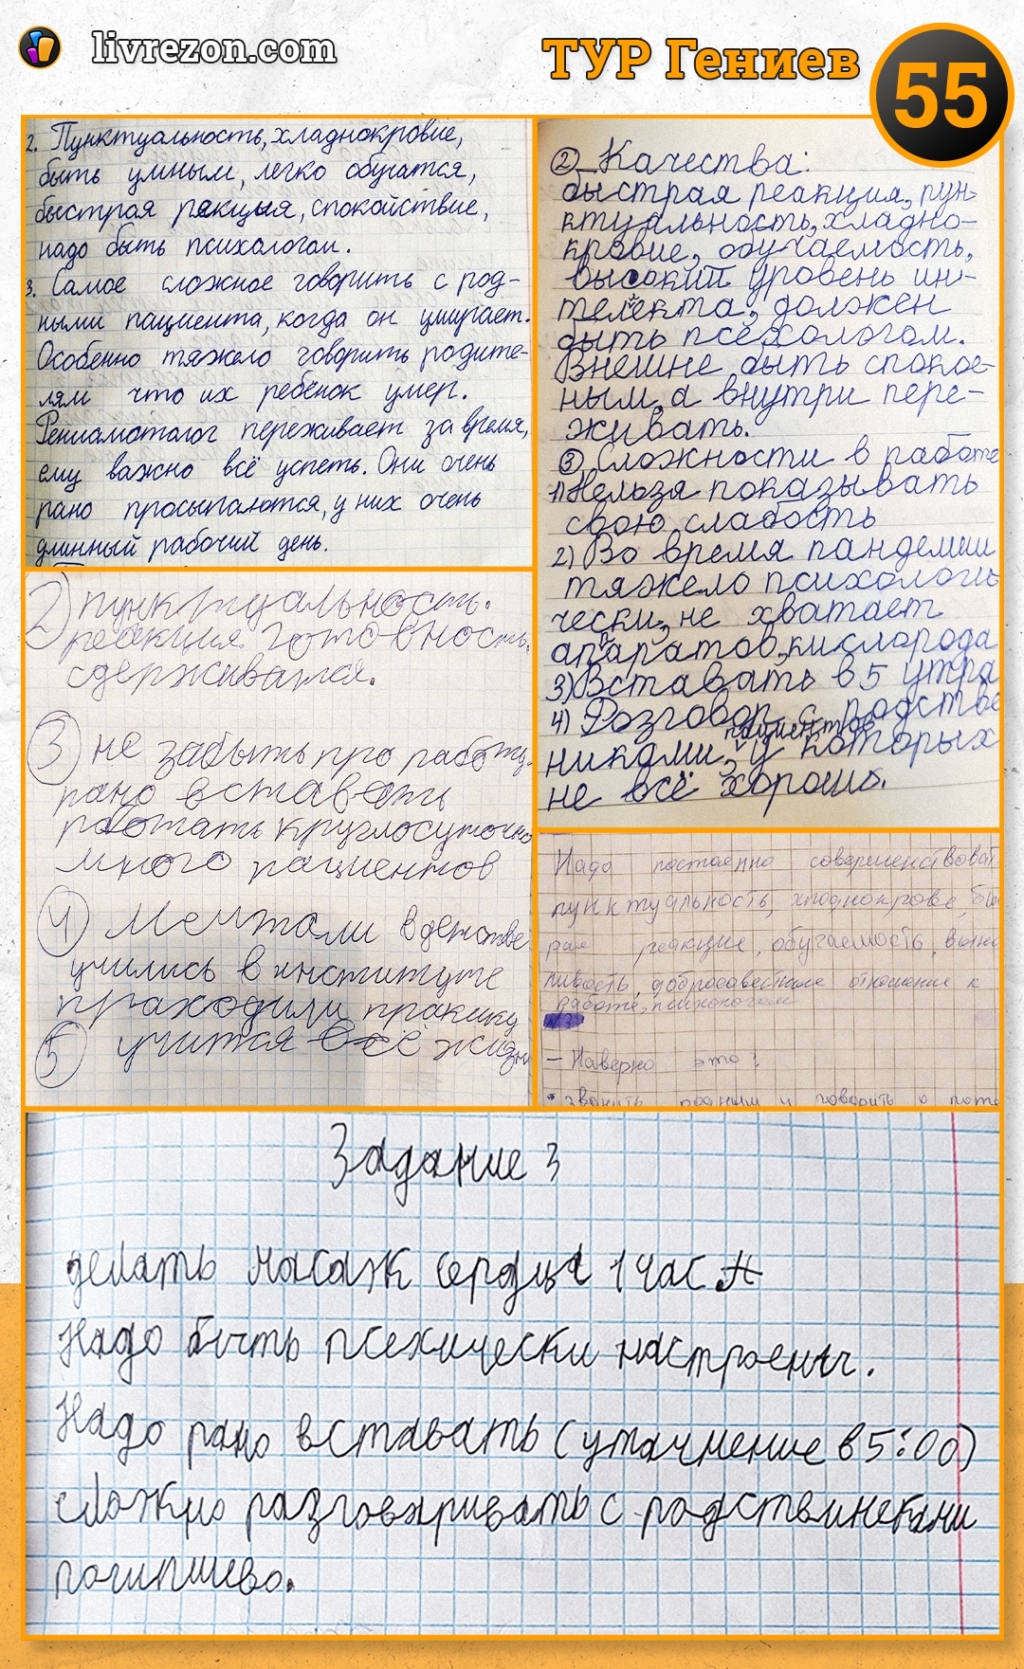 livrezon.com
ТУР Гениев
55
2. Пунктуальность, хладнокровие,
быть умным, легко обучатся,
быстрая рекция, спокойствие,
надо быть психологом.
3. Самое сложное говорить с род-
ными пациента, когда он умирает.
Особенно тяжело говорить родите-
лям что их ребёнок умер.
переживает за время,
ему важно всё успеть. Они очень
рано просыпаются, у них очень
длинный рабочий день.
2) пунктуальность.
реакция готовность.
сдерживатся.
3) не забыть про работу.
рано вставать
работать круглосуточно
много пациентов
4) Мечтали в детстве
учились в институте
праходили практику
5) учится всё жизни
② Качества:
быстрая реакция, пун-
ктуальность, хладно-
кровие, обучаемость,
высокий уровень ин-
телекта, должен
быть псехологом.
Внешне быть спокое-
ным, а внутри пере-
живать.
③ Сложности в работе
1) Нельзя показывать
свою слабость
2) Во время пандемии
тяжело психологи-
чески, не хватает
апаратов, кислорода
3) Вставать в 5 утра
4) Разговор с родстве
никами пациентов, у которых
не всё хорошо.
Надо постоенно совершенствоват
пунктуальность, хладнокрове, быс
рая реакцие, обучаемость, вынос
ливость, добросовестное отношение к
работе, психологом
№3
- Наверно это:
• звонить родным и говорить о
Задание 3
делать масаж сердца 1 час
Надо быть псехически настроеныч.
Надо рано вставать (утачнение в 5:00)
сложно разговаривать с родствинеками
погипшево.